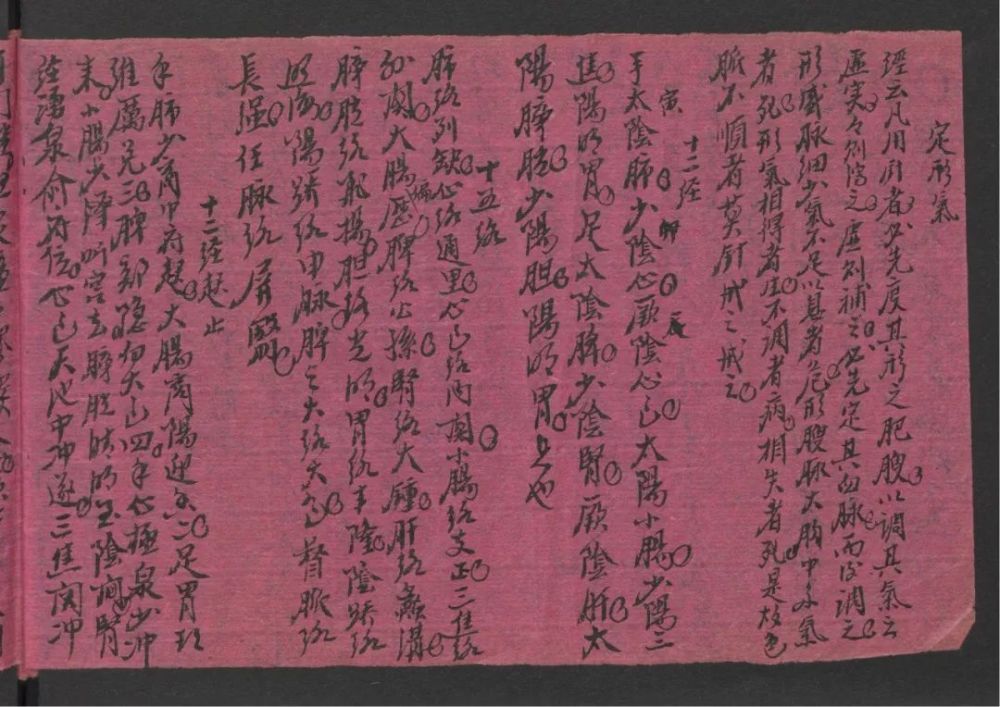 定形氣
經云凡用針者必先度其形之肥瘦以調其氣之
虛实々則瀉之虛則補之必先定其血脉而後調之
形盛脉細少氣不足以息者危形瘦脉大胸中多氣
者死形氣相得者生不調者病相失者死是故色
脈不順者莫針戒之戒之
十二経
寅 卯 辰
手太陰肺少陰心厥陰心包太陽小腸少陽三
焦陽明胃足太陰脾少陰腎厥陰肝太
陽膀胱少陽胆陽明胃是也
十五絡
肺络列缺心络通里心包络内関小腸络支正三焦络
外関大腸偏歷脾络公孫腎络大鍾肝络蠡溝
膀胱絡飛揚胆络光明胃络丰隆陰蹻络
照海陽蹻络申脉脾之大络大包督脈络
長强任脉络屏翳
十二経起止
手肺少商中府起大腸商陽迎香二足胃
維厲兑三脾部隐白大包四手心極泉少冲
来小腸少澤听宫去膀胱睛明至陰间腎
経湧泉俞府位心包天池中冲遂三焦関冲